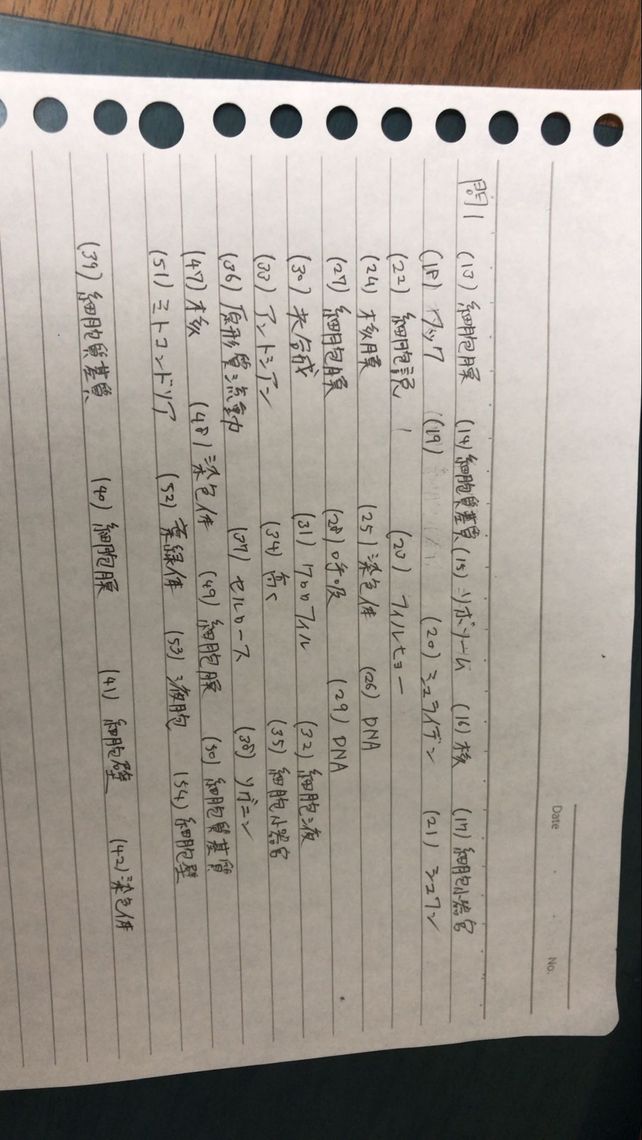 Date
No.
問1 (13) 細胞膜 (14) 細胞質基質 (15) リボソーム (16) 核 (17) 細胞小器官
(18) フック (19) (20) シュライデン (21) シュワン
(22) 細胞説 (20) フィルヒョー
(24) 核膜 (25) 染色体 (26) DNA
(27) 細胞膜 (28) 呼吸 (29) DNA
(30) 光合成 (31) クロロフィル (32) 細胞液
(33) アントシアン (34) 高い (35) 細胞小器官
(36) 原形質流動 (37) セルロース (38) リグニン
(47) 核 (48) 染色体 (49) 細胞膜 (50) 細胞質基質
(51) ミトコンドリア (52) 葉緑体 (53) 液胞 (54) 細胞壁
(39) 細胞質基質 (40) 細胞膜 (41) 細胞壁 (42) 染色体